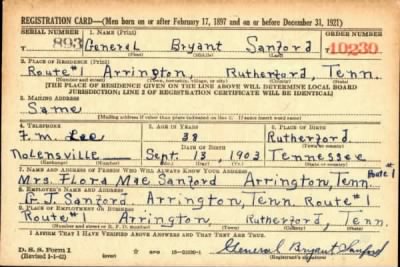 REGISTRATION CARD—(Men born on or after February 17, 1897 and on or before December 31, 1921)
SERIAL NUMBER 1. NAME (Print) ORDER NUMBER
893 General Bryant Sanford 10230
(First) (Middle) (Last)
2. PLACE OF RESIDENCE (Print)
Route #1 Arrington, Rutherford, Tenn.
(Number and street) (Town, township, village, or city) (County) (State)
[THE PLACE OF RESIDENCE GIVEN ON THE LINE ABOVE WILL DETERMINE LOCAL BOARD
JURISDICTION; LINE 2 OF REGISTRATION CERTIFICATE WILL BE IDENTICAL]
3. MAILING ADDRESS
Same
[Mailing address if other than place indicated on line 2. If same insert word same]
4. TELEPHONE 5. AGE IN YEARS 6. PLACE OF BIRTH
F.M. Lee 38 Rutherford
DATE OF BIRTH (Town or county)
Nolensville Sept. 13, 1903 Tennessee
(Exchange) (Number) (Mo.) (Day) (Yr.) (State or country)
7. NAME AND ADDRESS OF PERSON WHO WILL ALWAYS KNOW YOUR ADDRESS Route #1
Mrs. Flora Mae Sanford Arrington, Tenn.
8. EMPLOYER'S NAME AND ADDRESS
G. J. Sanford Arrington, Tenn. Route #1
9. PLACE OF EMPLOYMENT OR BUSINESS
Route #1 Arrington Rutherford, Tenn.
(Number and street or R. F. D. number) (Town) (County) (State)
I AFFIRM THAT I HAVE VERIFIED ABOVE ANSWERS AND THAT THEY ARE TRUE.
D. S. S. Form 1
(Revised 1-1-42) (over) General Bryant Sanford